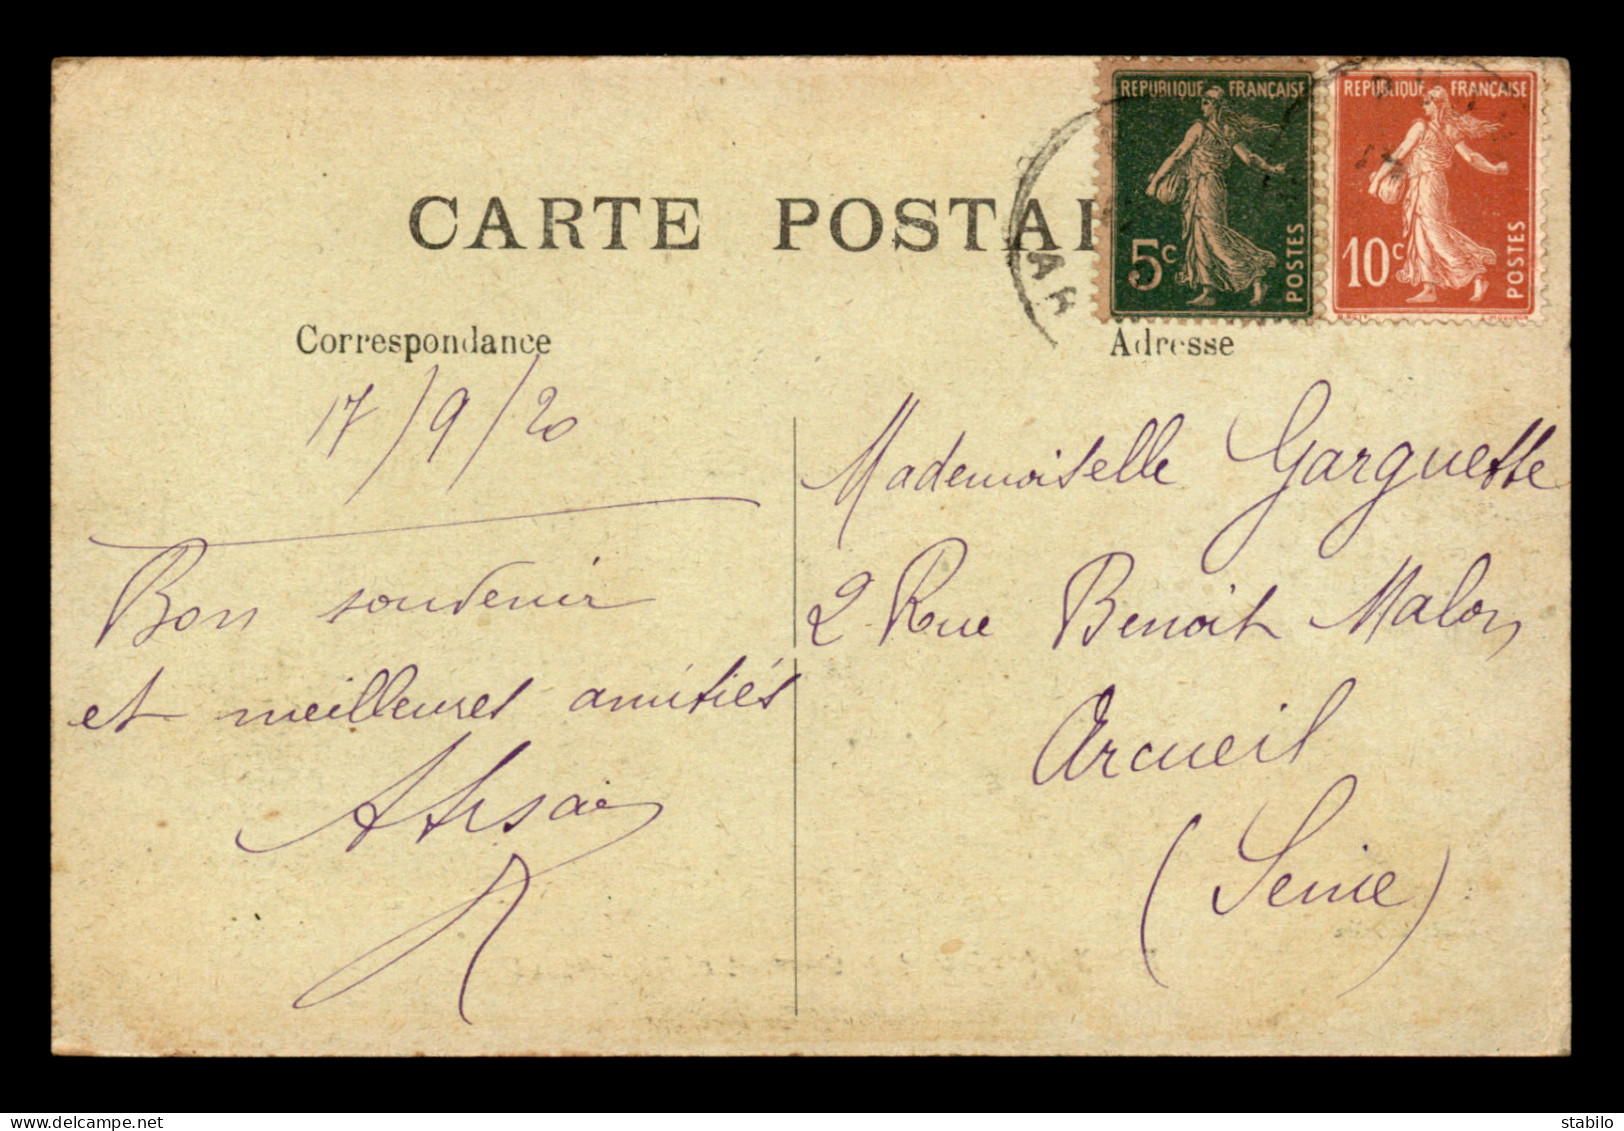 CARTE POSTAL
RÉPUBLIQUE FRANÇAISE
5c
POSTES
RÉPUBLIQUE FRANÇAISE
10c
POSTES
Correspondance
17/9/20
Bon souvenir
et meilleures amitiés
Adresse
Mademoiselle Garguette
2 Rue Benoit Malon
Arcueil
(Seine)
www.delcampe.net
stabilo